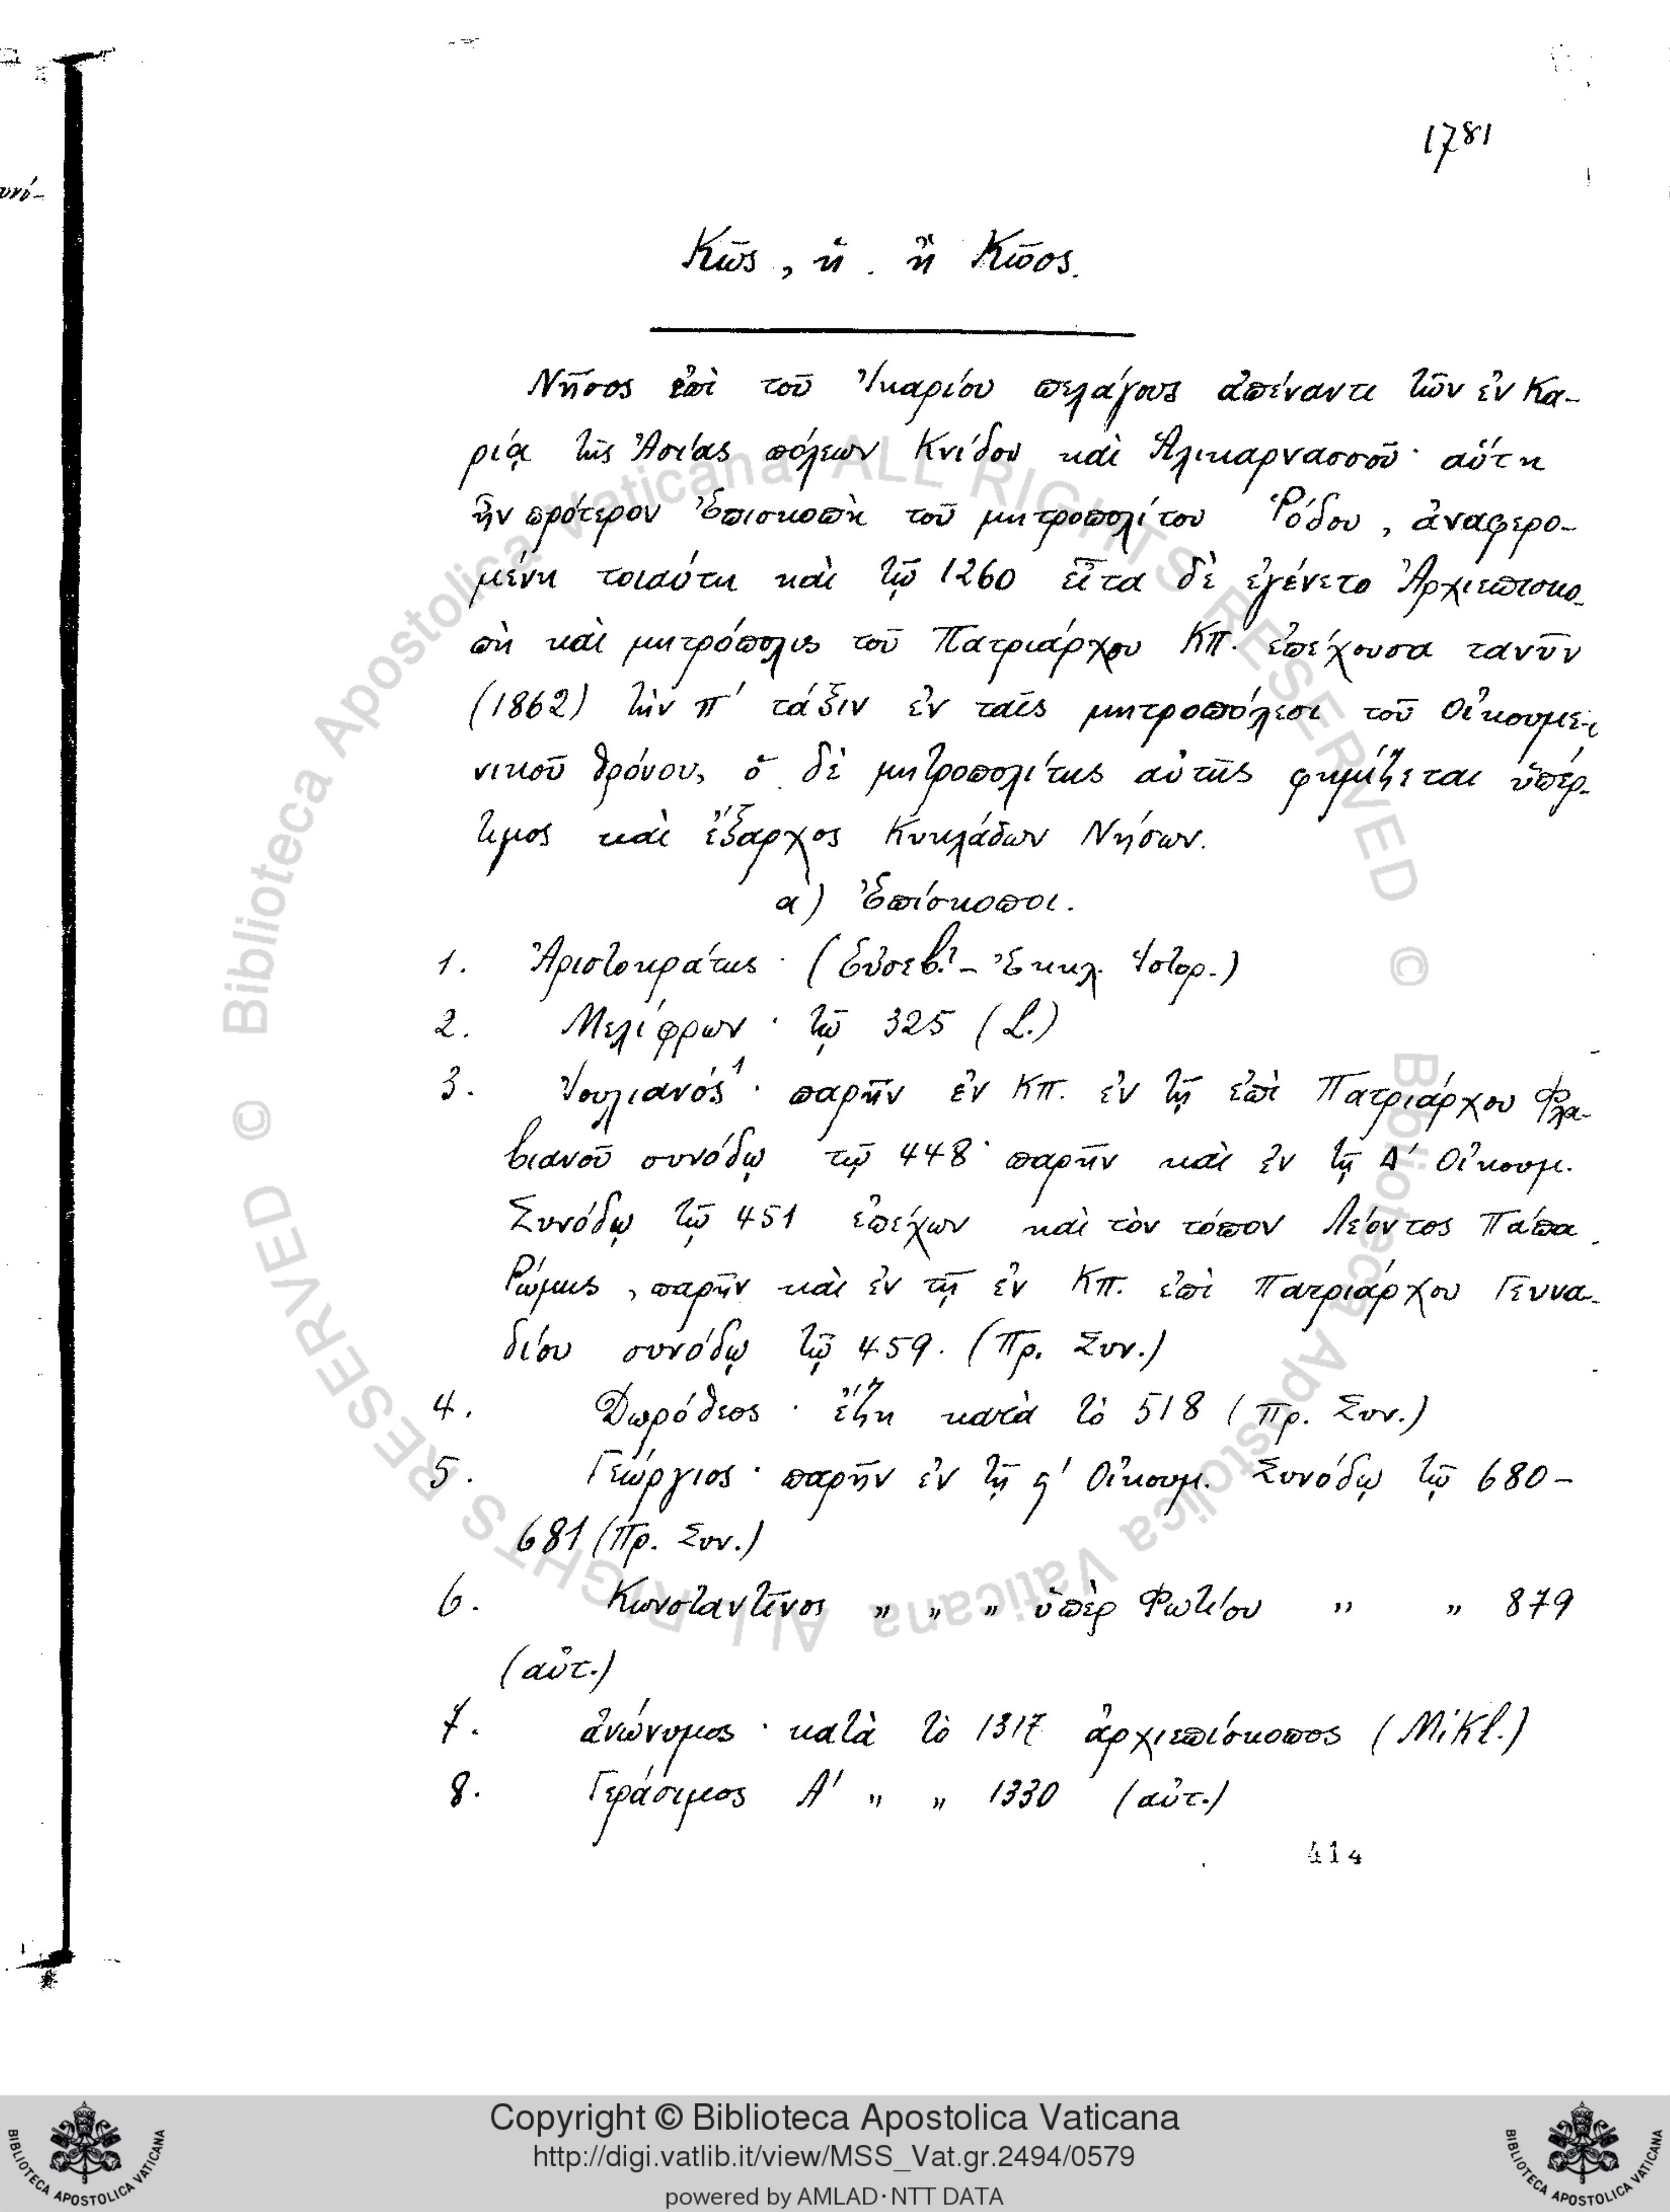 υνό-
1781
Κῶς, ἡ. ἢ Κῶος.
Νῆσος ἐπὶ τοῦ Ἰκαρίου πελάγους ἀπέναντι τῶν ἐν Κα-
ρίᾳ τῆς Ἀσίας πόλεων Κνίδου καὶ Ἁλικαρνασσοῦ· αὕτη
ἦν πρότερον Ἐπισκοπὴ τοῦ μητροπολίτου Ῥόδου, ἀναφερο-
μένη τοιαύτη καὶ τῷ 1260 εἶτα δὲ ἐγένετο Ἀρχιεπισκο-
πὴ καὶ μητρόπολις τοῦ Πατριάρχου ΚΠ. ἐπέχουσα τανῦν
(1862) τὴν π' τάξιν ἐν ταῖς μητροπόλεσι τοῦ Οἰκουμε-
νικοῦ θρόνου, ὁ δὲ μητροπολίτης αὐτῆς φημίζεται ὑπέρ-
τιμος καὶ ἔξαρχος Κυκλάδων Νήσων.
α) Ἐπίσκοποι.
1. Ἀριστοκράτης · (Εὐσεβ. - Ἐκκλ. Ἱστορ.)
2. Μελίφρων · τῷ 325 (L.)
3. Ἰουλιανός¹ · παρῆν ἐν ΚΠ. ἐν τῇ ἐπὶ Πατριάρχου Φλα-
βιανοῦ συνόδῳ τῷ 448· παρῆν καὶ ἐν τῇ Δ' Οἰκουμ.
Συνόδῳ τῷ 451 ἐπέχων καὶ τὸν τόπον Λέοντος Πάπα
Ῥώμης, παρῆν καὶ ἐν τῇ ἐν ΚΠ. ἐπὶ Πατριάρχου Γεννα-
δίου συνόδῳ τῷ 459. (Πρ. Συν.)
4. Δωρόθεος · ἔζη κατὰ τὸ 518 (Πρ. Συν.)
5. Γεώργιος · παρῆν ἐν τῇ ϛ' Οἰκουμ. Συνόδῳ τῷ 680-
681 (Πρ. Συν.)
6. Κωνσταντῖνος " " " ὑπὲρ Φωτίου " " 879
(αὐτ.)
7. ἀνώνυμος · κατὰ τὸ 1317 ἀρχιεπίσκοπος (Mikl.)
8. Γεράσιμος Α' " " 1330 (αὐτ.)
414
© Biblioteca Apostolica Vaticana ALL RIGHTS RESERVED © Biblioteca Apostolica Vaticana ALL RIGHTS RESERVED
Copyright © Biblioteca Apostolica Vaticana
http://digi.vatlib.it/view/MSS_Vat.gr.2494/0579
powered by AMLAD·NTT DATA
BIBLIOTECA APOSTOLICA VATICANA
BIBLIOTECA APOSTOLICA VATICANA